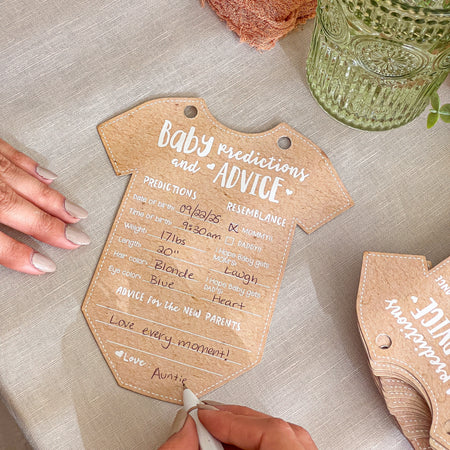 Baby Predictions
and ADVICE
PREDICTIONS RESEMBLANCE
Date of birth: 09/22/25 ☒ MOMMY?
Time of birth: 9:30am ☐ DADDY?
Weight: 17lbs Hope baby gets
Length: 20" MOM'S: Laugh
Hair color: Blonde Hope baby gets
Eye color: Blue DAD'S: Heart
ADVICE FOR THE NEW PARENTS
Love every moment!
Love
Auntie
predictions